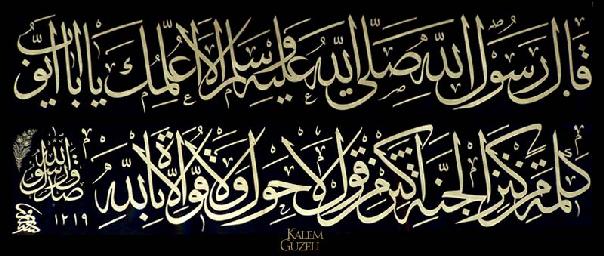 قال رسول الله صلى الله عليه وسلم الا اعلمك يا ابا ايوب
كلمة من كنز الجنة اكثر من قول لا حول ولا قوة الا بالله
صدق رسول الله
١٢١٩
KALEM
GUZELI